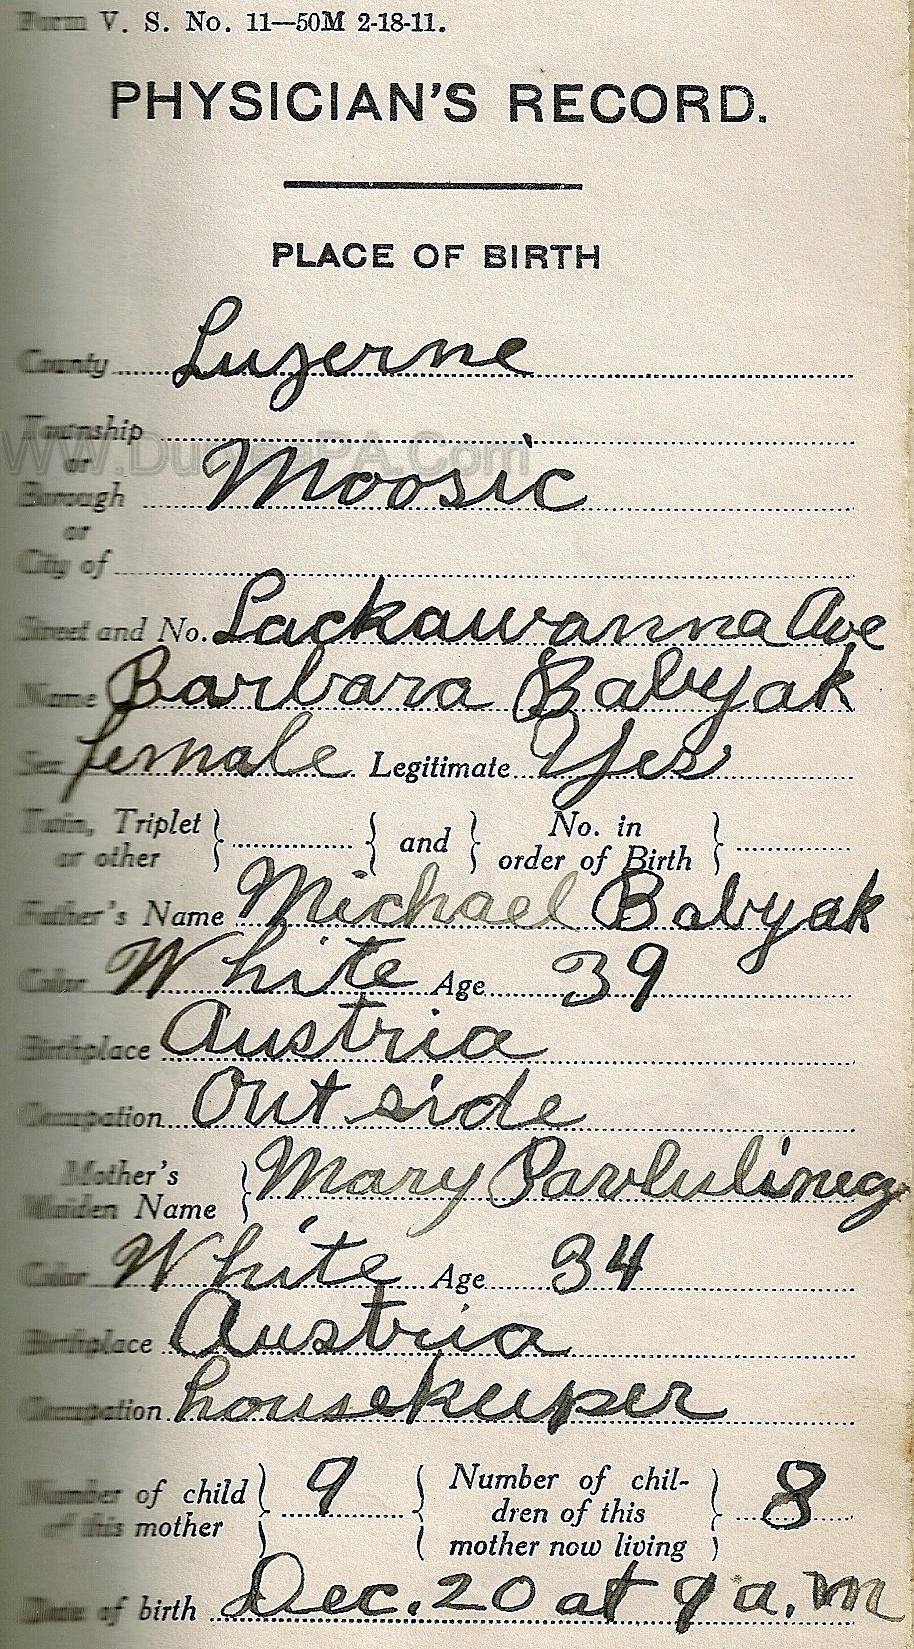 Form V. S. No. 11—50M 2-18-11.
PHYSICIAN'S RECORD.
PLACE OF BIRTH
County Luzerne
Township
or
Borough Moosic
or
City of
Street and No. Lackawanna Ave
Name Barbara Babyak
Sex female Legitimate Yes
Twin, Triplet or other } { and } No. in order of Birth }
Father's Name Michael Babyak
Color White Age 39
Birthplace Austria
Occupation Outside
Mother's Maiden Name } Mary
Color White Age 34
Birthplace Austria
Occupation housekeeper
Number of child of this mother } 9 { Number of children of this mother now living } 8
Date of birth Dec. 20 at 9 a.m
www.DuryeaPA.Com